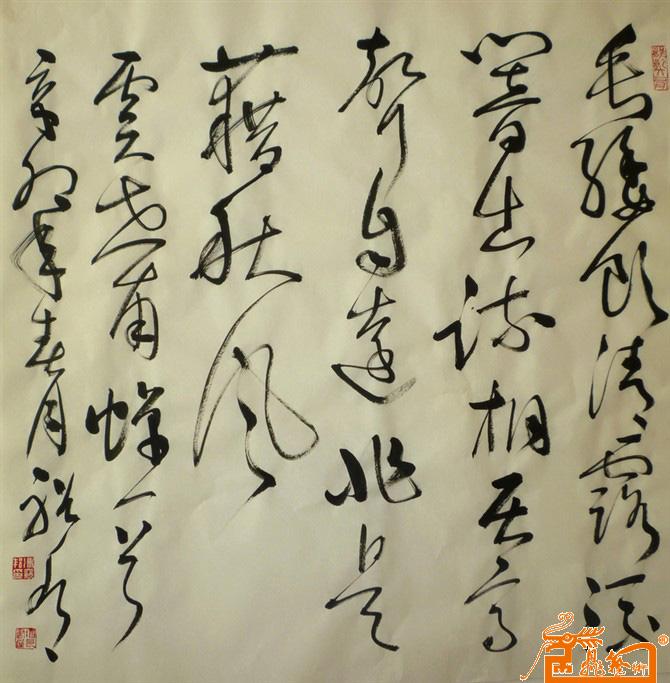 垂緌飲清露流
響出疏桐居高
聲自遠非是
藉秋風
虞世南蟬一首
辛卯年春月